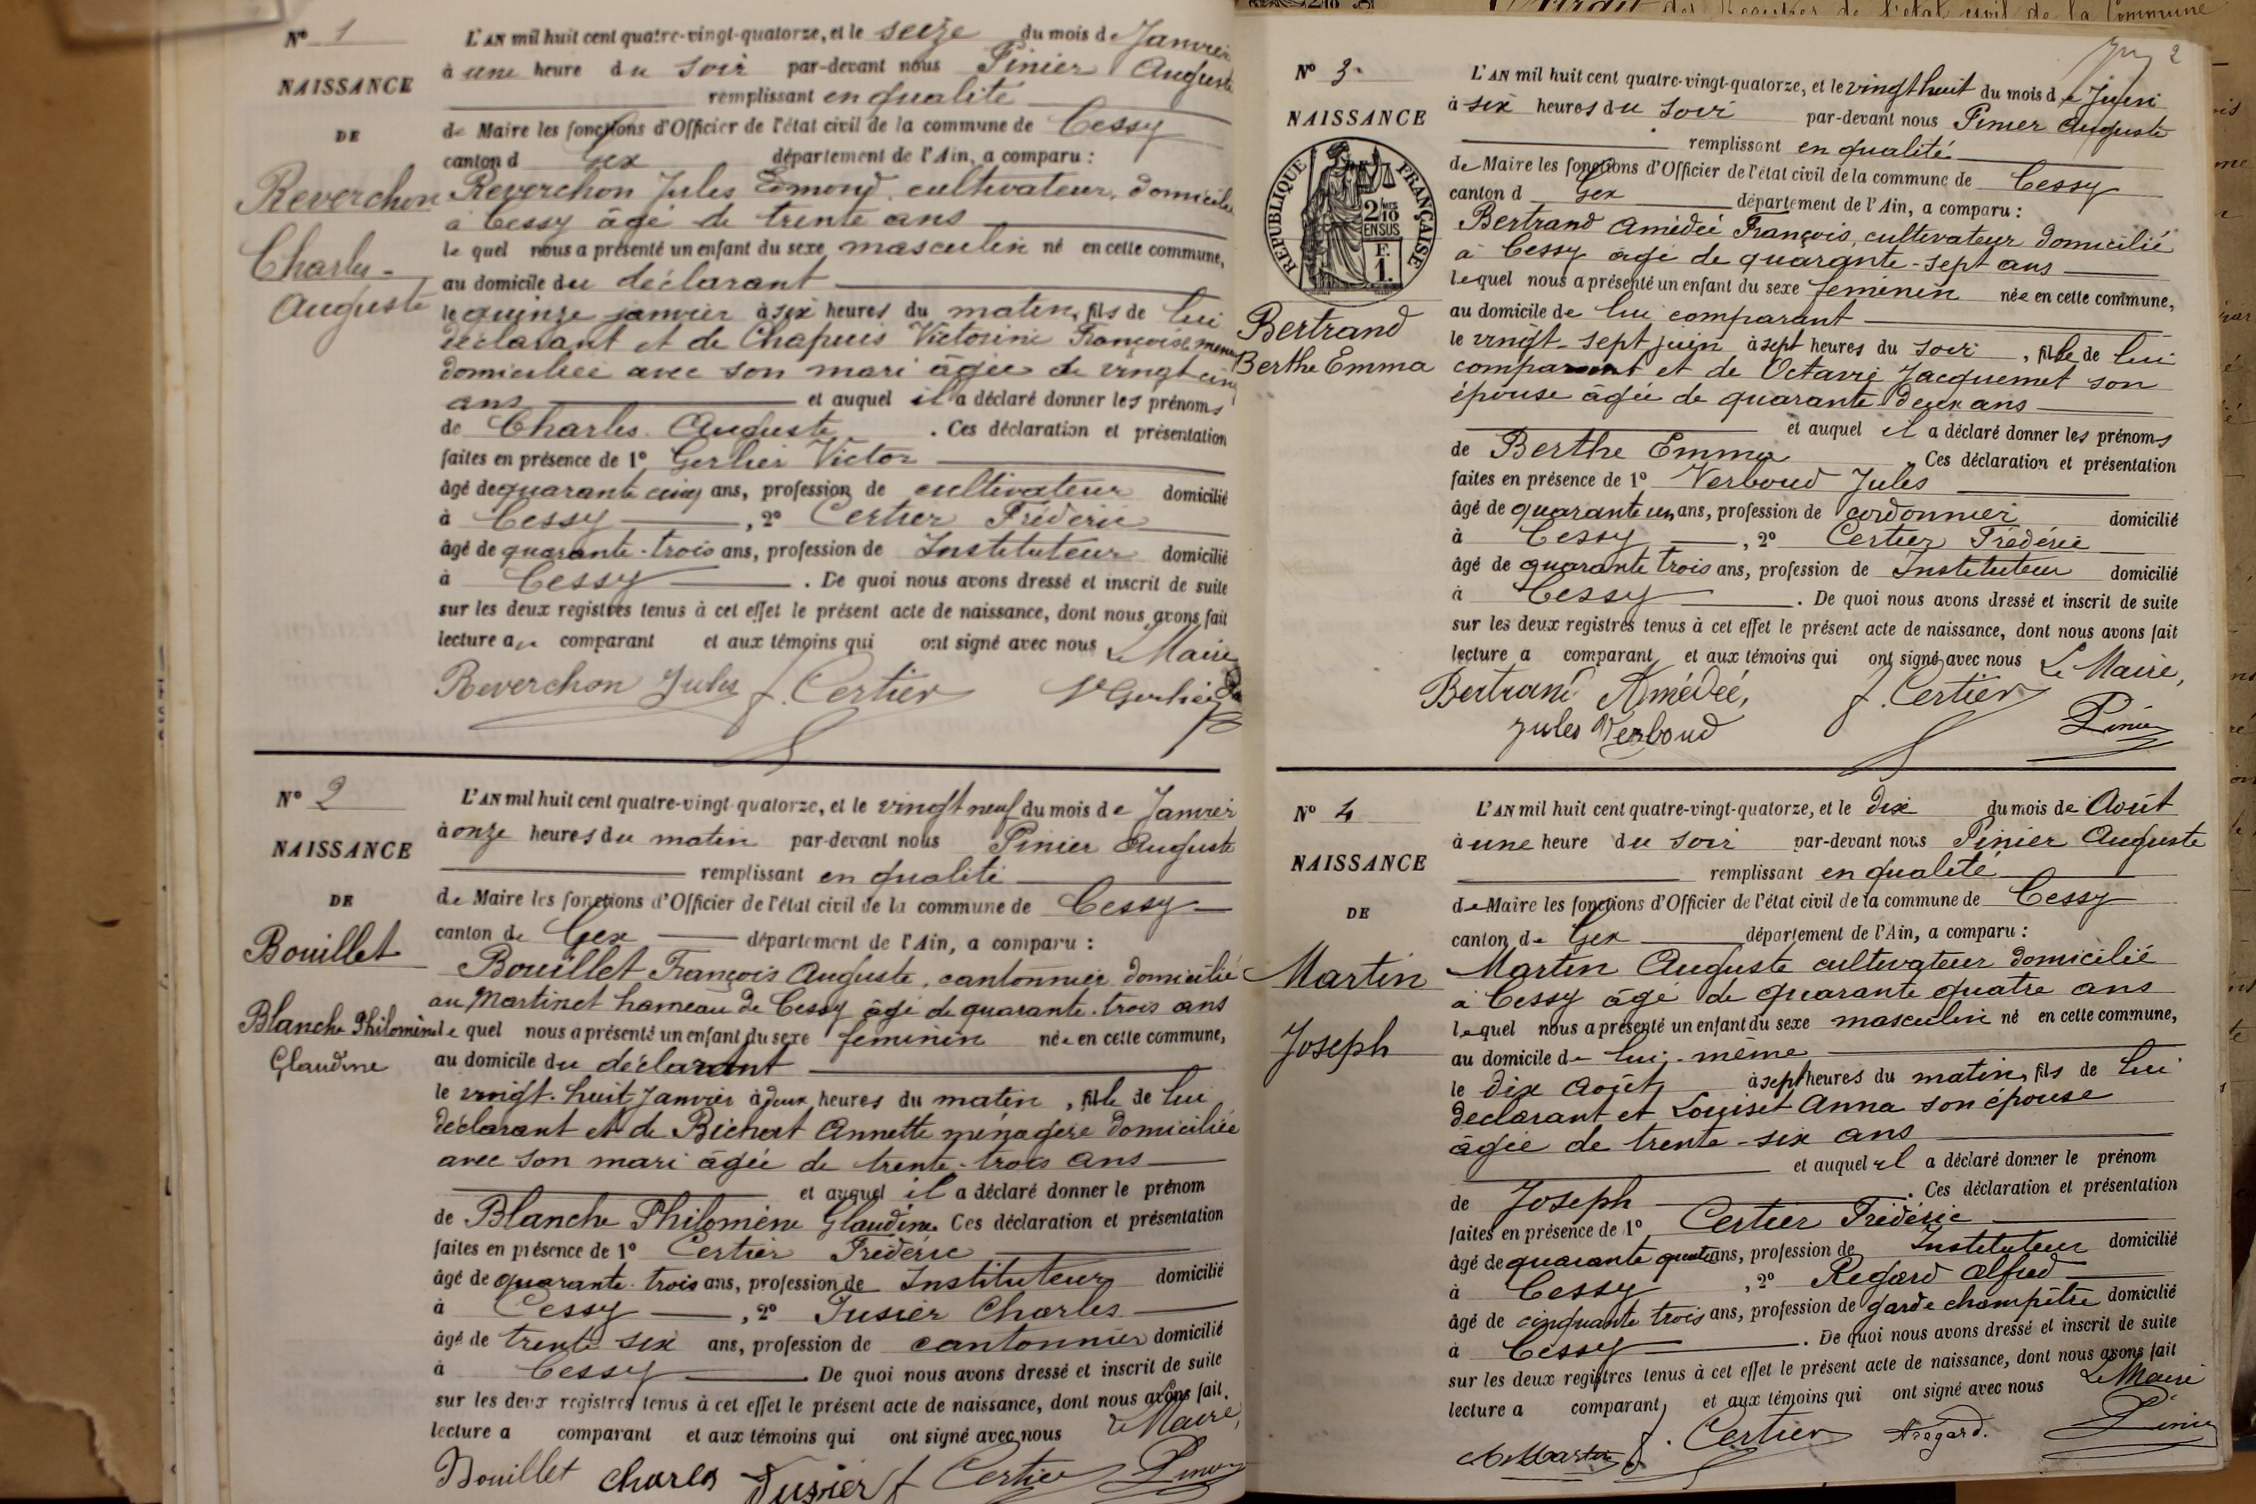 N° 1
NAISSANCE
DE
Reverchon
Charles-
Auguste
L'AN mil huit cent quatre-vingt-quatorze, et le seize du mois de Janvier
à une heure du soir par-devant nous Pinier Auguste
remplissant en qualité
de Maire les fonctions d'Officier de l'état civil de la commune de Cessy
canton d Gex département de l'Ain, a comparu :
Reverchon Jules Edmond, cultivateur, domicilié
à Cessy âgé de trente ans
le quel nous a présenté un enfant du sexe masculin né en cette commune,
au domicile du déclarant
le quinze janvier à six heures du matin, fils de lui
déclarant et de Chapuis Victorine Françoise
domiciliée avec son mari âgée de vingt cinq
ans et auquel il a déclaré donner les prénoms
de Charles Auguste . Ces déclaration et présentation
faites en présence de 1° Gerlier Victor
âgé de quarante cinq ans, profession de cultivateur domicilié
à Cessy , 2° Certier Fréderic
âgé de quarante-trois ans, profession de Instituteur domicilié
à Cessy . De quoi nous avons dressé et inscrit de suite
sur les deux registres tenus à cet effet le présent acte de naissance, dont nous avons fait
lecture au comparant et aux témoins qui ont signé avec nous Le Maire
Reverchon Jules f. Certier Vr Gerlier
N° 2
NAISSANCE
DE
Bouillet
Blanche Philomène
Glaudine
L'AN mil huit cent quatre-vingt-quatorze, et le vingt neuf du mois de Janvier
à onze heures du matin par-devant nous Pinier Auguste
remplissant en qualité
de Maire les fonctions d'Officier de l'état civil de la commune de Cessy
canton de Gex département de l'Ain, a comparu :
Bouillet François Auguste, cantonnier domicilié
au Martinet hameau de Cessy âgé de quarante-trois ans
le quel nous a présenté un enfant du sexe féminin née en cette commune,
au domicile du déclarant
le vingt-huit Janvier à deux heures du matin, fille de lui
déclarant et de Annette ménagère domiciliée
avec son mari âgée de trente-trois ans
et auquel il a déclaré donner le prénom
de Blanche Philomène Glaudine. Ces déclaration et présentation
faites en présence de 1° Certier Fréderic
âgé de quarante-trois ans, profession de Instituteur domicilié
à Cessy , 2° Tusier Charles
âgé de trente six ans, profession de cantonnier domicilié
à Cessy . De quoi nous avons dressé et inscrit de suite
sur les deux registres tenus à cet effet le présent acte de naissance, dont nous avons fait
lecture a comparant et aux témoins qui ont signé avec nous Le Maire,
Bouillet Charles Tusier f Certier Pinier
2
N° 3.
NAISSANCE
RÉPUBLIQUE FRANÇAISE
2/10
EN SUS
F.
1.
Bertrand
Berthe Emma
L'AN mil huit cent quatre-vingt-quatorze, et le vingt huit du mois de Juin
à six heures du soir par-devant nous Pinier Auguste
remplissant en qualité
de Maire les fonctions d'Officier de l'état civil de la commune de Cessy
canton d Gex département de l'Ain, a comparu :
Bertrand Amédée François, cultivateur domicilié
à Cessy âgé de quarante-sept ans
lequel nous a présenté un enfant du sexe féminin née en cette commune,
au domicile de lui comparant
le vingt-sept juin à sept heures du soir , fille de lui
comparant et de Octavie Jacquemet son
épouse âgée de quarante deux ans
et auquel il a déclaré donner les prénoms
de Berthe Emma . Ces déclaration et présentation
faites en présence de 1° Verboud Jules
âgé de quarante un ans, profession de cordonnier domicilié
à Cessy , 2° Certier Fréderic
âgé de quarante trois ans, profession de Instituteur domicilié
à Cessy . De quoi nous avons dressé et inscrit de suite
sur les deux registres tenus à cet effet le présent acte de naissance, dont nous avons fait
lecture a comparant et aux témoins qui ont signé avec nous Le Maire,
Bertrand Amédée, f. Certier
Jules Verboud Pinier
N° 4
NAISSANCE
DE
Martin
Joseph
L'AN mil huit cent quatre-vingt-quatorze, et le dix du mois de Août
à une heure du soir par-devant nous Pinier Auguste
remplissant en qualité
de Maire les fonctions d'Officier de l'état civil de la commune de Cessy
canton de Gex département de l'Ain, a comparu :
Martin Auguste cultivateur domicilié
à Cessy âgé de quarante quatre ans
lequel nous a présenté un enfant du sexe masculin né en cette commune,
au domicile de lui-même
le dix Août à sept heures du matin, fils de lui
déclarant et Louiset Anna son épouse
âgée de trente-six ans
et auquel il a déclaré donner le prénom
de Joseph . Ces déclaration et présentation
faites en présence de 1° Certier Fréderic
âgé de quarante quatre ans, profession de Instituteur domicilié
à Cessy , 2° Regard Alfred
âgé de cinquante trois ans, profession de garde champêtre domicilié
à Cessy . De quoi nous avons dressé et inscrit de suite
sur les deux registres tenus à cet effet le présent acte de naissance, dont nous avons fait
lecture a comparant et aux témoins qui ont signé avec nous Le Maire
A Martin f. Certier A regard. Pinier